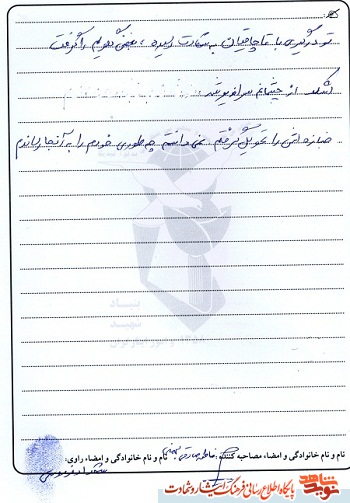 تو درگیری با قاچاقچیان به شهادت رسیده، بغض گلویم را گرفت
اشک از چشمانم سرازیر شد.
جنازه اش را تحویل گرفتم نمی دانم چه طوری خودم را به آنجا رساندم
بنیاد
شهید
نام و نام خانوادگی و امضاء مصاحبه کننده: نام و نام خانوادگی و امضاء راوی:
نوید شاهد
پایگاه اطلاع رسانی فرهنگ ایثار و شهادت